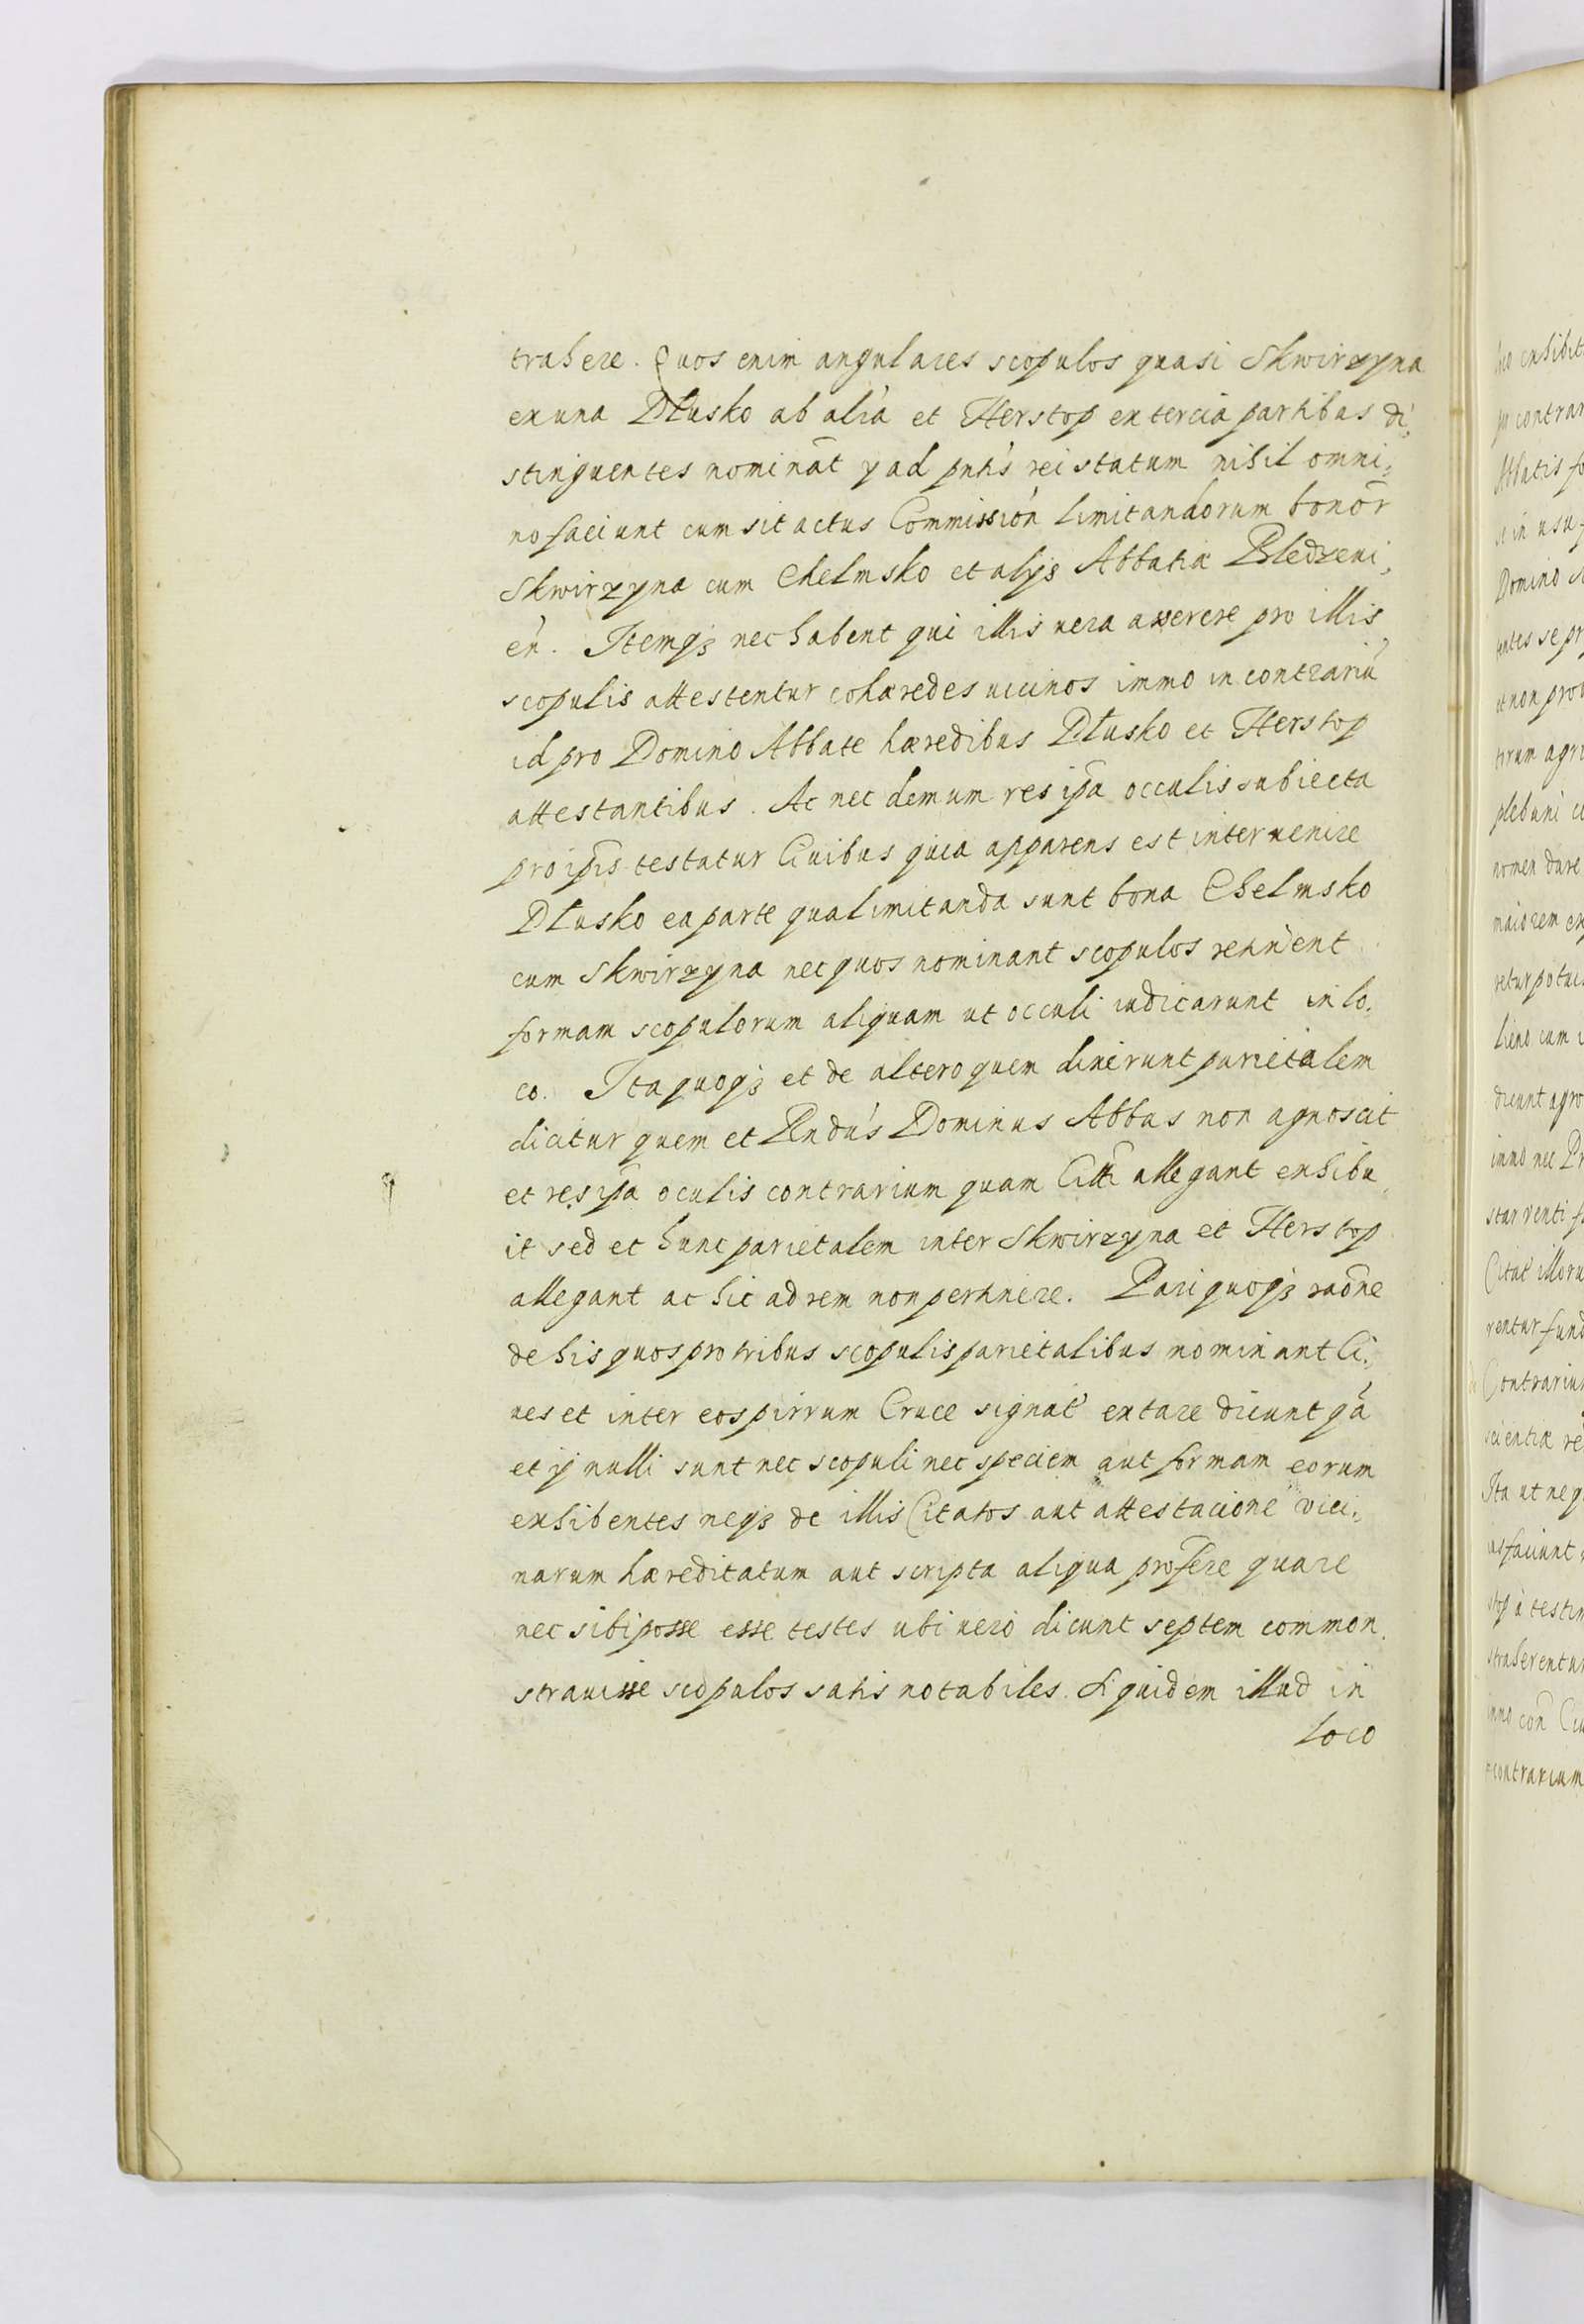 trahere. Quos enim angulares scopulos quasi Skwirzyna
ex una Dłusko ab alia et Herstop ex tercia partibus di,
stinguentes nominãt y ad pntis rei statum nihil omni,
no faciunt cum sit actus Commission limitandorum bonor
Skwirzyna cum Chelmsko et alys Abbatiæ Bledzeui,
en. Itemqz nec habent qui illis uera asserere pro illis
scopulis attestentur cohæredes uicinos immo in contrariu
id pro Domino Abbate hæredibus Dłusko et Herstop
attestantibus. Ac nec demum res ipa occulis subiecta
pro ipis testatur Ciuibus quia apparens est interuenire
Dłusko ea parte qua limitanda sunt bona Chelmsko
cum Skwirzyna nec quos nominant scopulos retinent
formam scopulorum aliquam ut occuli iudicarunt in lo,
co. Ita quoqz et de altero quem dixerunt parietalem
dicitur quem et Rndus Dominus Abbas non agnoscit
et res ipa oculis contrarium quam Citti allegant exhibu,
it sed et hunc parietalem inter Skwirzyna et Herstop
allegant ac hic ad rem non pertinere. Pari quoqz raone
de his quos pro tribus scopulis parietalibus nominant Ci,
ues et inter eos pirrum Cruce signat extare dicunt qa
et y nulli sunt nec scopuli nec speciem aut formam eorum
exhibentes neqz de illis Citatos aut attestacione vici,
narum hæreditatum aut scripta aliqua profere quare
nec sibi posse esse testes ubi uero dicunt septem common,
strauisse scopulos satis notabiles. Siquidem illud in
loco